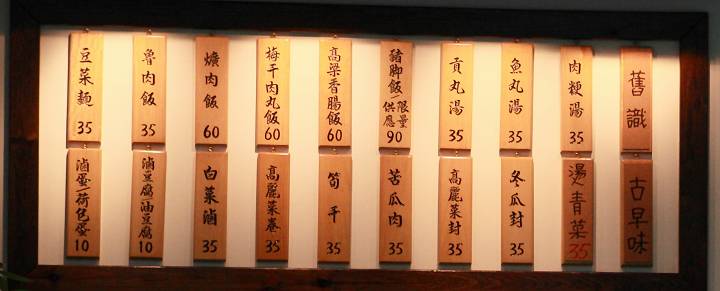 舊識
肉粳湯 35
魚丸湯 35
貢丸湯 35
豬脚飯/限量供應 90
高梁香腸飯 60
梅干肉丸飯 60
爌肉飯 60
魯肉飯 35
豆菜麵 35
古早味
燙青菜 35
冬瓜封 35
高麗菜封 35
苦瓜肉 35
筍干 35
高麗菜卷 35
白菜滷 35
滷豆腐/油豆腐 10
滷蛋/荷包蛋 10